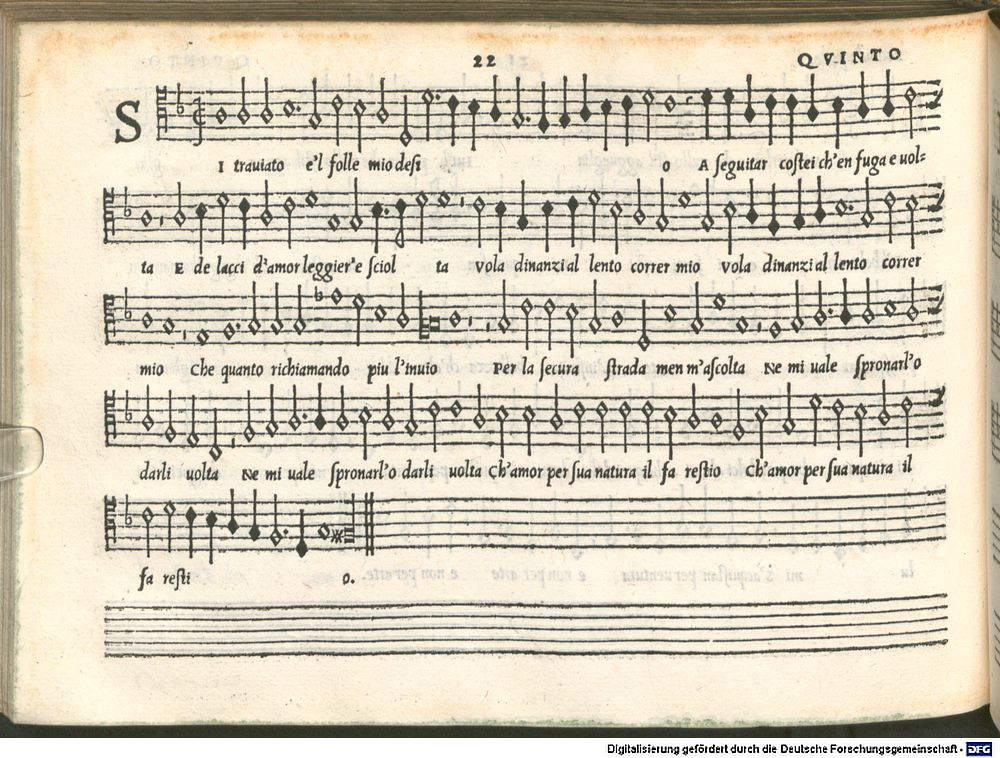 22
QVINTO
SI trauiato e'l folle mio desi o A seguitar costei ch'en fuga e uol=
ta E de lacci d'amor leggier'e sciol ta vola dinanzi al lento correr mio vola dinanzi al lento correr
mio Che quanto richiamando piu l'inuio Per la secura strada men m'ascolta Ne mi uale spronarl'o
darli uolta Ne mi uale spronarl'o darli uolta Ch'amor per sua natura il fa restio Ch'amor per sua natura il
fa resti o.
Digitalisierung gefördert durch die Deutsche Forschungsgemeinschaft - DFG